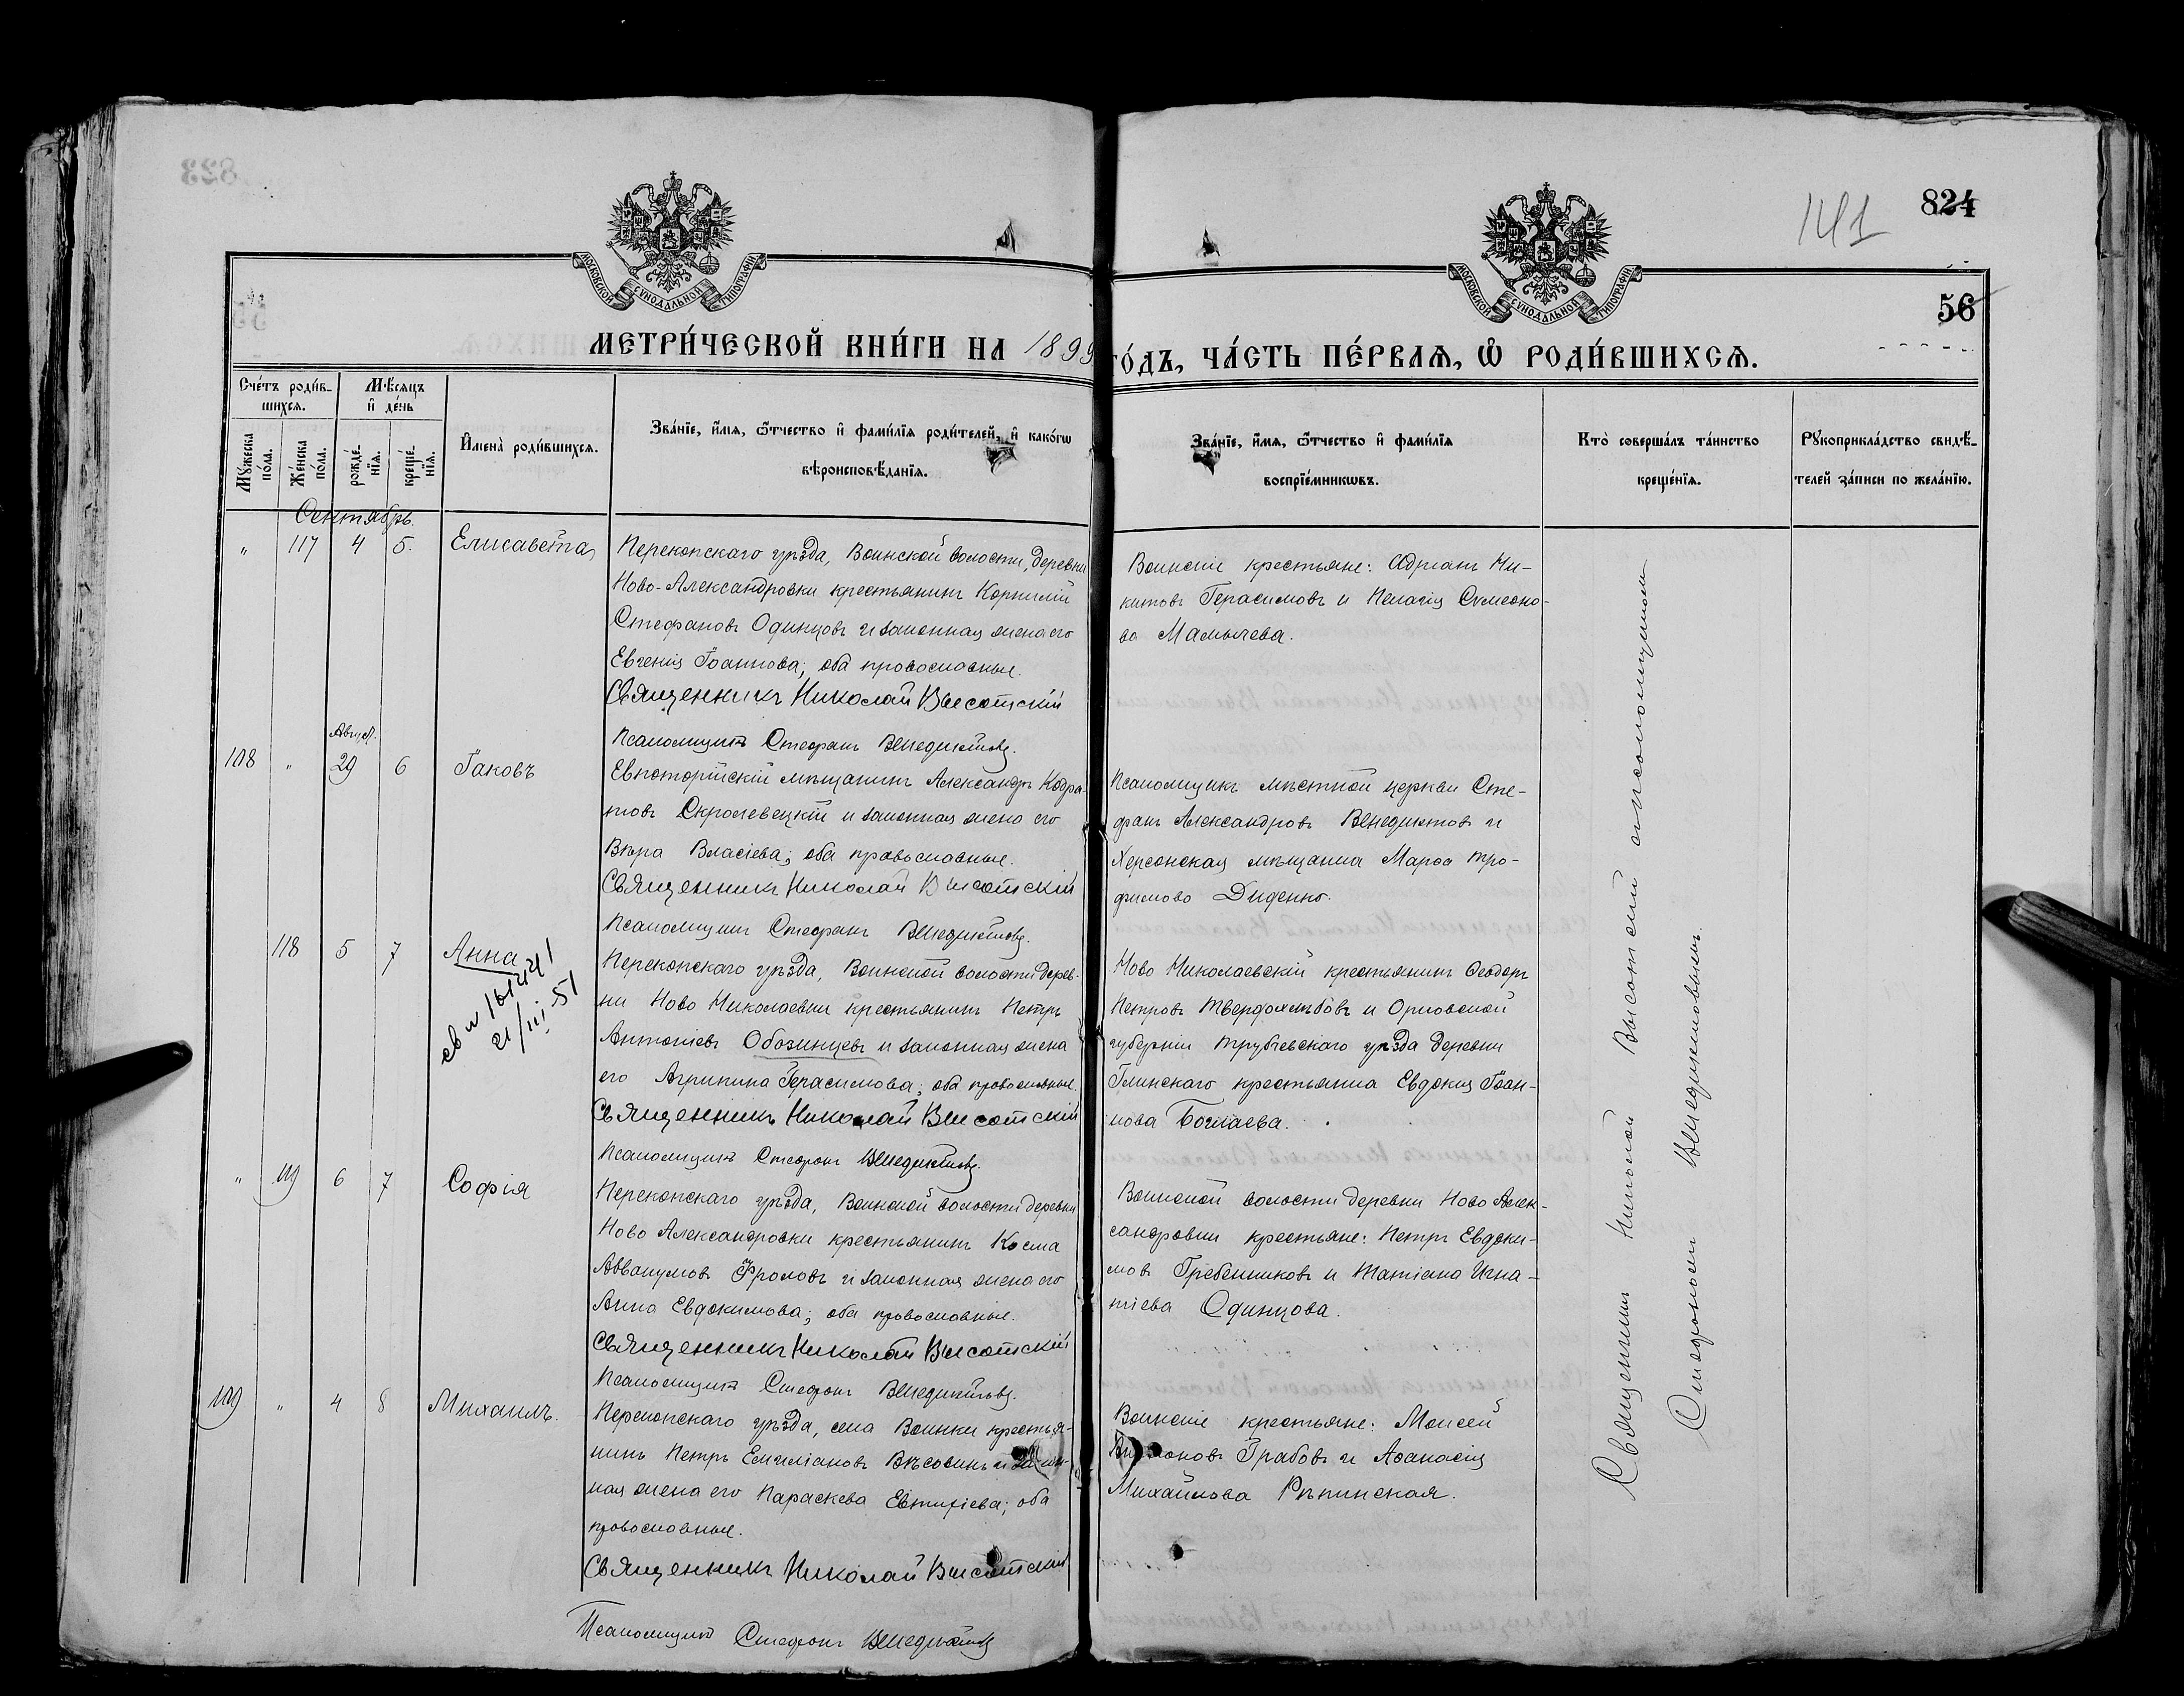 824
141
56
МОСКОВСКОЙ СѴНОДАЛЬНОЙ ТИПОГРАФІИ
МОСКОВСКОЙ СѴНОДАЛЬНОЙ ТИПОГРАФІИ
МЕТРИ́ЧЕСКОЙ КНИ́ГИ НА 1899
ГО́ДЪ, ЧА́СТЬ ПЕ́РВАѦ, Ѡ҆ РОДИ́ВШИХСѦ.
Сче́тъ роди́в-
шихсѧ.
Мꙋ́жеска по́ла.
Же́нска по́ла.
Мѣ́сѧцъ
и҆ де́нь
рожде́-
нїѧ.
креще́-
нїѧ.
И҆мена̀ роди́вшихсѧ.
Зва́нїе, и҆́мѧ, ѻ҆́тчество и҆ фами́лїѧ роди́телей, и҆ како́гѡ
вѣроисповѣ́данїѧ.
Зва́нїе, и҆́мѧ, ѻ҆́тчество и҆ фами́лїѧ
воспрїе́мникѡвъ.
Кто̀ соверша́лъ та́инство
креще́нїѧ.
Рꙋкоприкла́дство свидѣ́-
телей за́писи по жела́нїю.
Сентябрь.
" 117 4 5. Елисавета
Перекопскаго уѣзда, Воинской волости, деревни
Ново-Александровки крестьянинъ Корнилій
Стефановъ Одинцовъ и законная жена его
Евгенія Іоаннова; оба православные.
Священникъ Николай Высотскій
Псаломщикъ Стефанъ Венедиктовъ.
Воинскіе крестьяне: Адріанъ Ни-
китовъ Герасимовъ и Пелагія Сѵмеоно-
ва Мамычева.
108 " Август. 29 6 Іаковъ
Евпаторійскій мѣщанинъ Александръ Кодра-
товъ Скролевецкій и законная жена его
Вѣра Власіева; оба православные.
Священникъ Николай Высотскій
Псаломщикъ Стефанъ Венедиктовъ.
Псаломщикъ мѣстной церкви Сте-
фанъ Александровъ Венедиктовъ и
Херсонская мѣщанка Марѳа Тро-
фимова Диденко.
118 5 7 Анна
св и 161441
21/III-51
Перекопскаго уѣзда, Воинской волости дерев-
ни Ново Николаевки крестьянинъ Петръ
Антоніевъ Обозинцевъ и законная жена
его Агрипина Герасимова; оба православные.
Священникъ Николай Высотскій
Псаломщикъ Стефанъ Венедиктовъ.
Ново Николаевскій крестьянинъ Ѳеодоръ
Петровъ Твердохлѣбовъ и Орловской
губерніи Трубчевскаго уѣзда деревни
Глинскаго крестьянка Евдокія Іоан-
нова Боглаева.
" 119 6 7 Софія
Перекопскаго уѣзда, Воинской волости деревни
Ново Александровки крестьянинъ Косма
Аввакумовъ Фроловъ и законная жена его
Анна Евдокимова; оба православные.
Священникъ Николай Высотскій
Псаломщикъ Стефанъ Венедиктовъ.
Воинской волости деревни Ново Алек-
сандровки крестьяне: Петръ Евдоки-
мовъ Гребенниковъ и Татіана Игна-
тіева Одинцова.
109 " 4 8 Михаилъ.
Перекопскаго уѣзда, села Воинки крестья-
нинъ Петръ Емиліановъ Вѣсовинъ и закон-
ная жена его Параскева Евтихіева; оба
православные.
Священникъ Николай Высотскій
Псаломщикъ Стефанъ Венедиктовъ
Воинскіе крестьяне: Моисей
Грабовъ и Аѳанасія
Михайлова Рѣпинская.
Священникъ Николай Высотскій съ псаломщикомъ
Стефаномъ Венедиктовымъ.